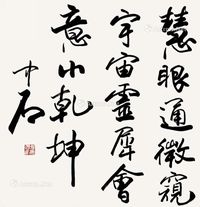 慧眼通微窺
宇宙靈犀會
意小乾坤
中石